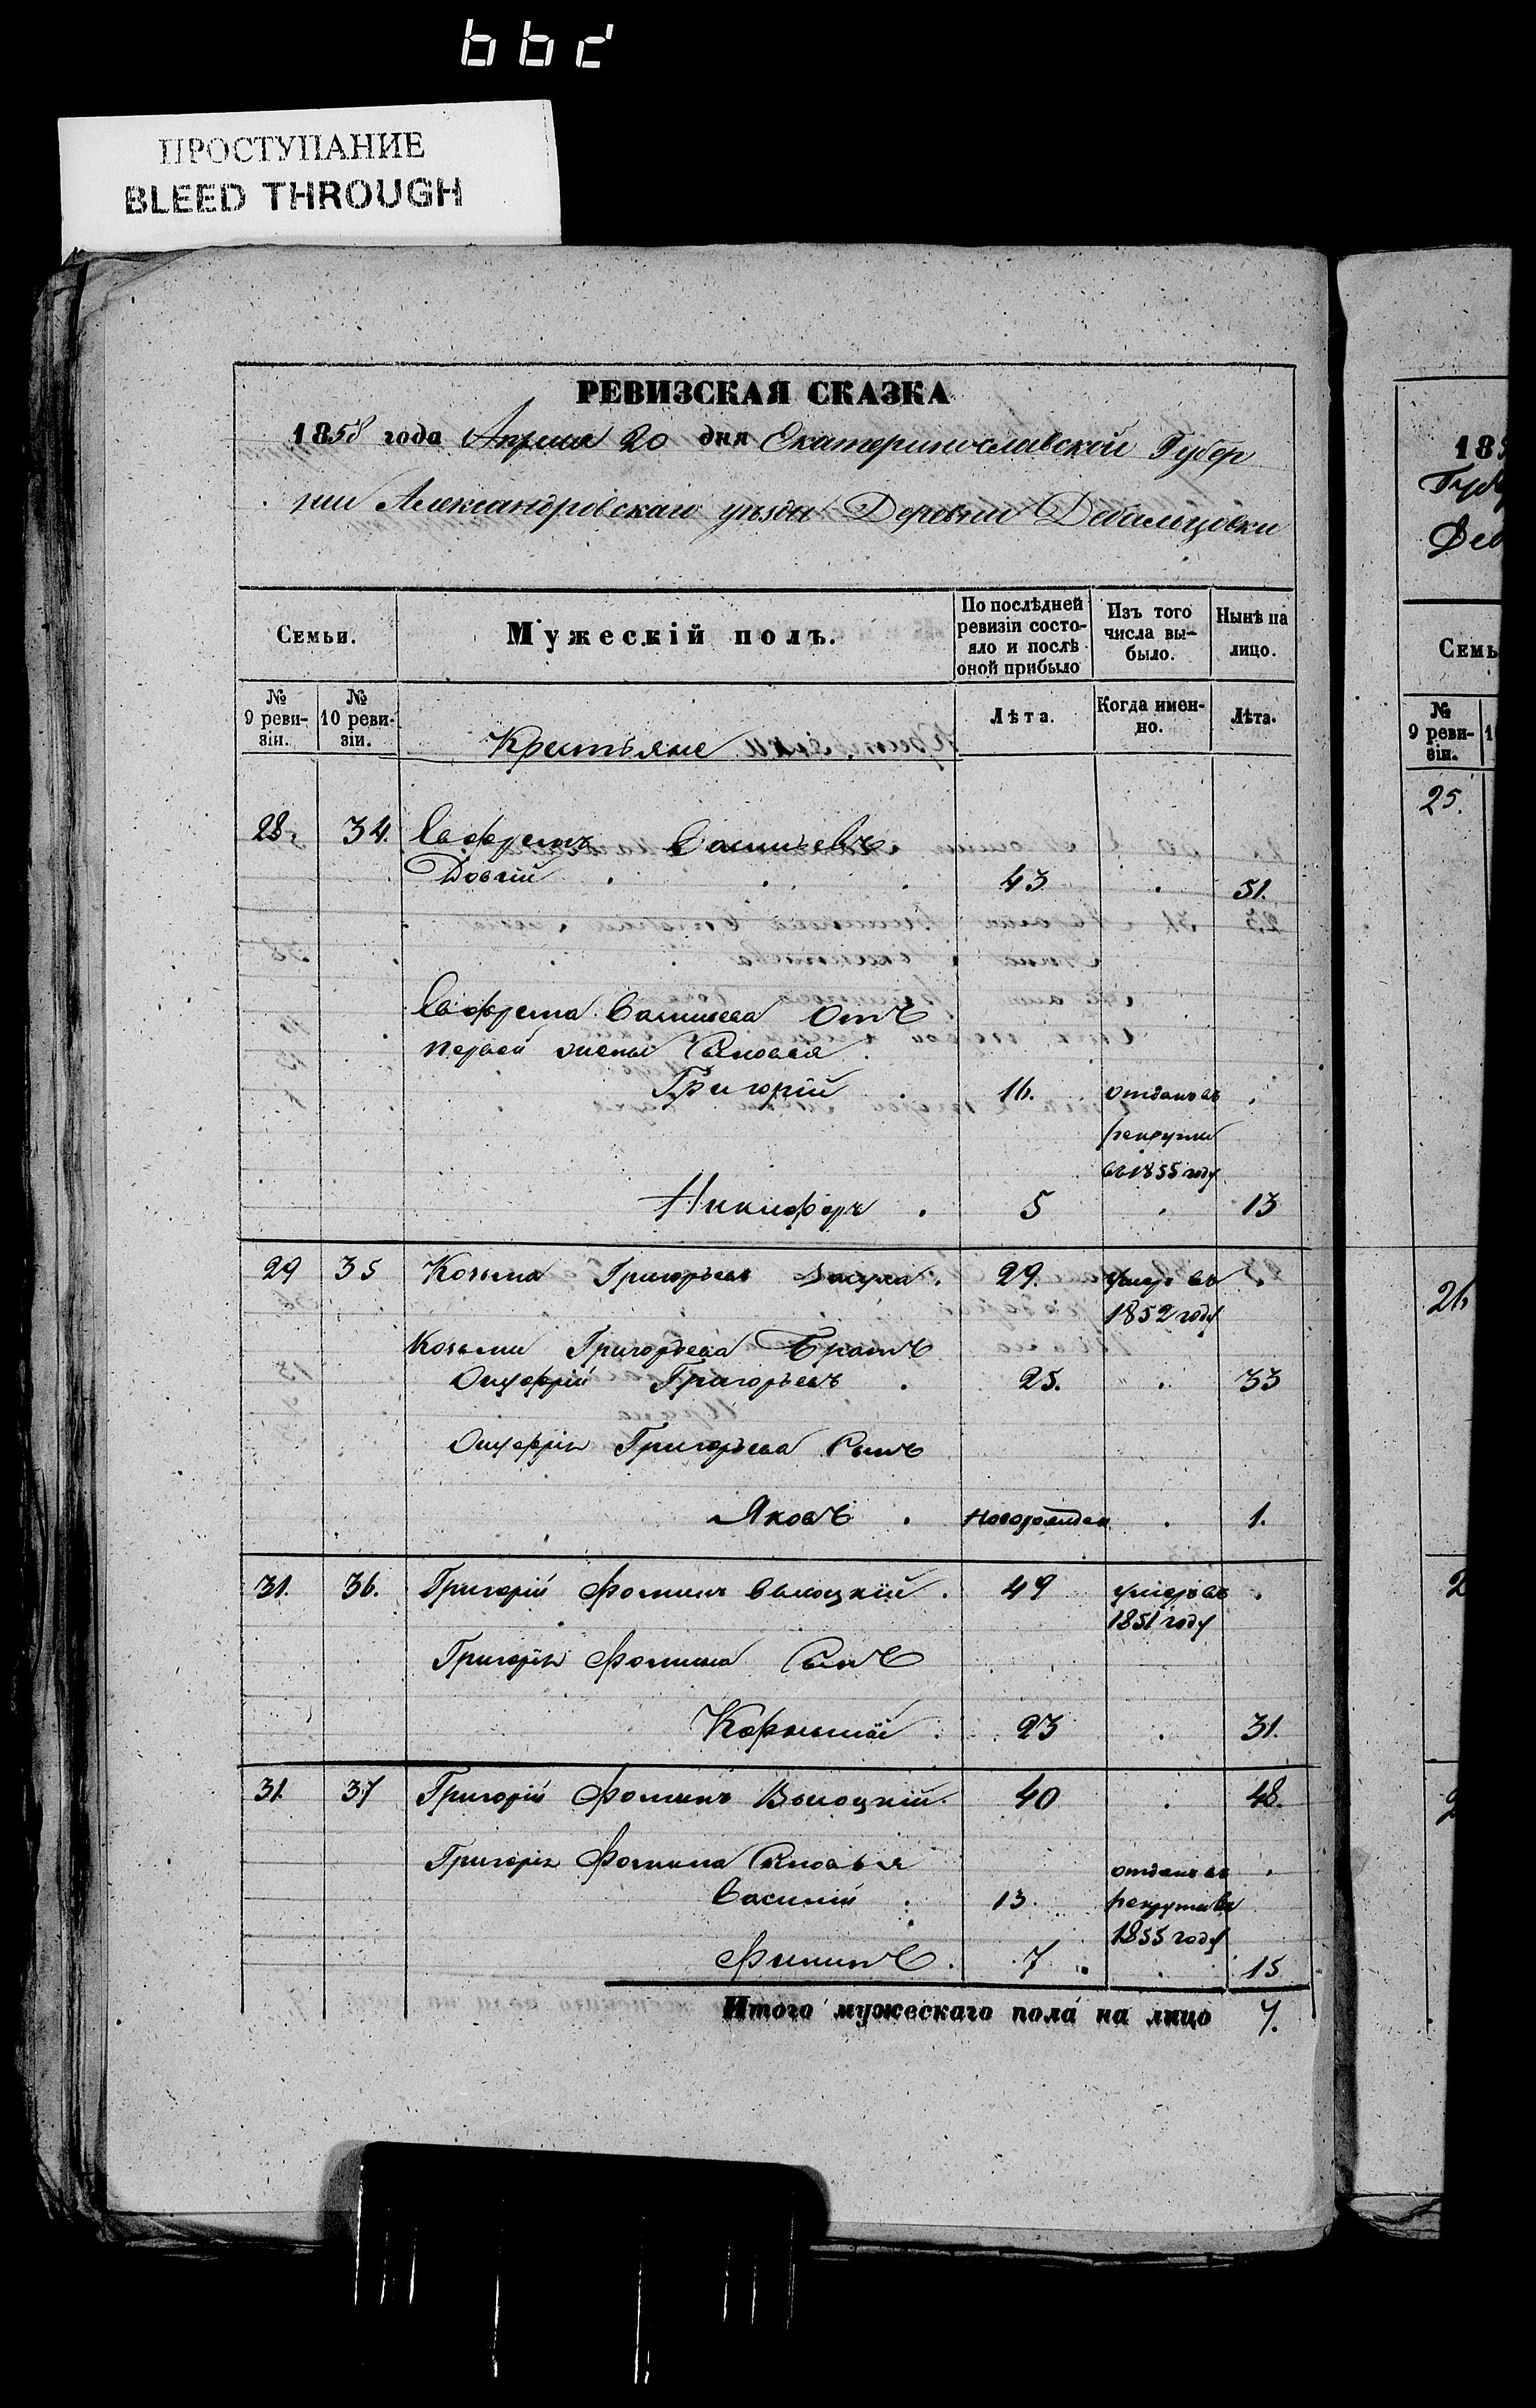 ПРОСТУПАНИЕ
BLEED THROUGH
РЕВИЗСКАЯ СКАЗКА
1858 года Апреля 20 дня Екатеринославской Губер
нии Александровскаго уѣзда Деревни Дебальцовки
Семьи.
Мужескій полъ.
По послѣдней ревизіи состо-
яло и послѣ
оной прибыло
Изъ того
числа вы-
было.
Нынѣ на
лицо.
№
9 реви-
зіи.
№
10 реви-
зіи.
Крестьяне
Лѣта.
Когда имен-
но.
Лѣта.
28. 34. Евфремъ Васильевъ
Довгій 43 51.
Евфрема Васильева отъ
первой жены Сыновья
Григорій 16. отданъ въ
рекруты
въ 1855 году
Никифоръ 5 13
29 35 Козьма Григорьевъ 29. умеръ въ
1852 году
Козьмы Григорьева Братъ
Онуфрій Григорьевъ 25. 33
Онуфрія Григорьева Сынъ
Яковъ новорожден 1.
31. 36. Григорій Фоминъ Высоцкій 49 умеръ въ
1851 году
Григорія Фомина Сынъ
Корнилій 23 31.
31. 37 Григорій Фоминъ Высоцкій 40 48.
Григорія Фомина Сыновья отданъ въ
Василій 13. рекруты въ
1855 году
Филипъ 7 15
Итого мужескаго пола на лицо 7.
185
Дев
Семь
№
9 реви-
зіи.
25.
26